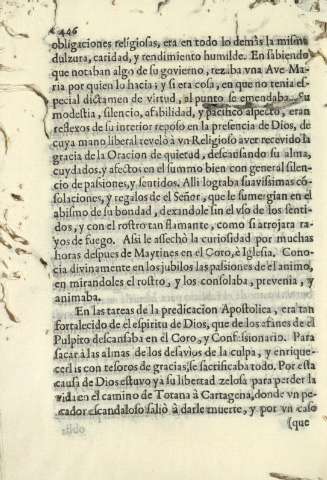 446
obligaciones religiosas, era en todo lo demàs la misma
dulzura, caridad, y rendimiento humilde. En sabiendo
que notaban algo de su govierno, rezaba vna Ave-Ma-
ria por quien lo hacia; y si era cosa, en que no tenia es-
pecial dictamen de virtud, al punto se emendaba. Su
modestia, silencio, afabilidad, y pacifico aspecto, eran
reflexos de su interior reposo en la presencia de Dios, de
cuya mano liberal revelò à vn Religioso aver recevido la
gracia de la Oracion de quietud, descansando su alma,
cuydados, y afectos en el summo bien con general silen-
cio de pasiones, y sentidos. Alli lograba suavissimas cõ-
solaciones, y regalos de el Señor, que le sumergian en el
abismo de su bondad, dexandole sin el vso de los senti-
dos, y con el rostro tan flamante, como si atrojara ra-
yos de fuego. Assi le assechò la curiosidad por muchas
horas despues de Maytines en el Coro, è Iglesia. Cono-
cia divinamente en los jubilos las pasiones de el animo,
en mirandoles el rostro, y los consolaba, prevenia, y
animaba.
En las tareas de la predicacion Apostolica, era tan
fortalecido de el espiritu de Dios, que de los afanes de el
Pulpito descansaba en el Coro, y Confessionario. Para
sacar à las almas de los desvios de la culpa, y enrique-
cerlas con tesoros de gracias, se sacrificaba todo. Por esta
causa de Dios estuvo ya su libertad zelosa para perder la
vida en el camino de Totana à Cartagena, donde vn pe-
cador escandaloso saliò à darle muerte, y por vn caso
(que